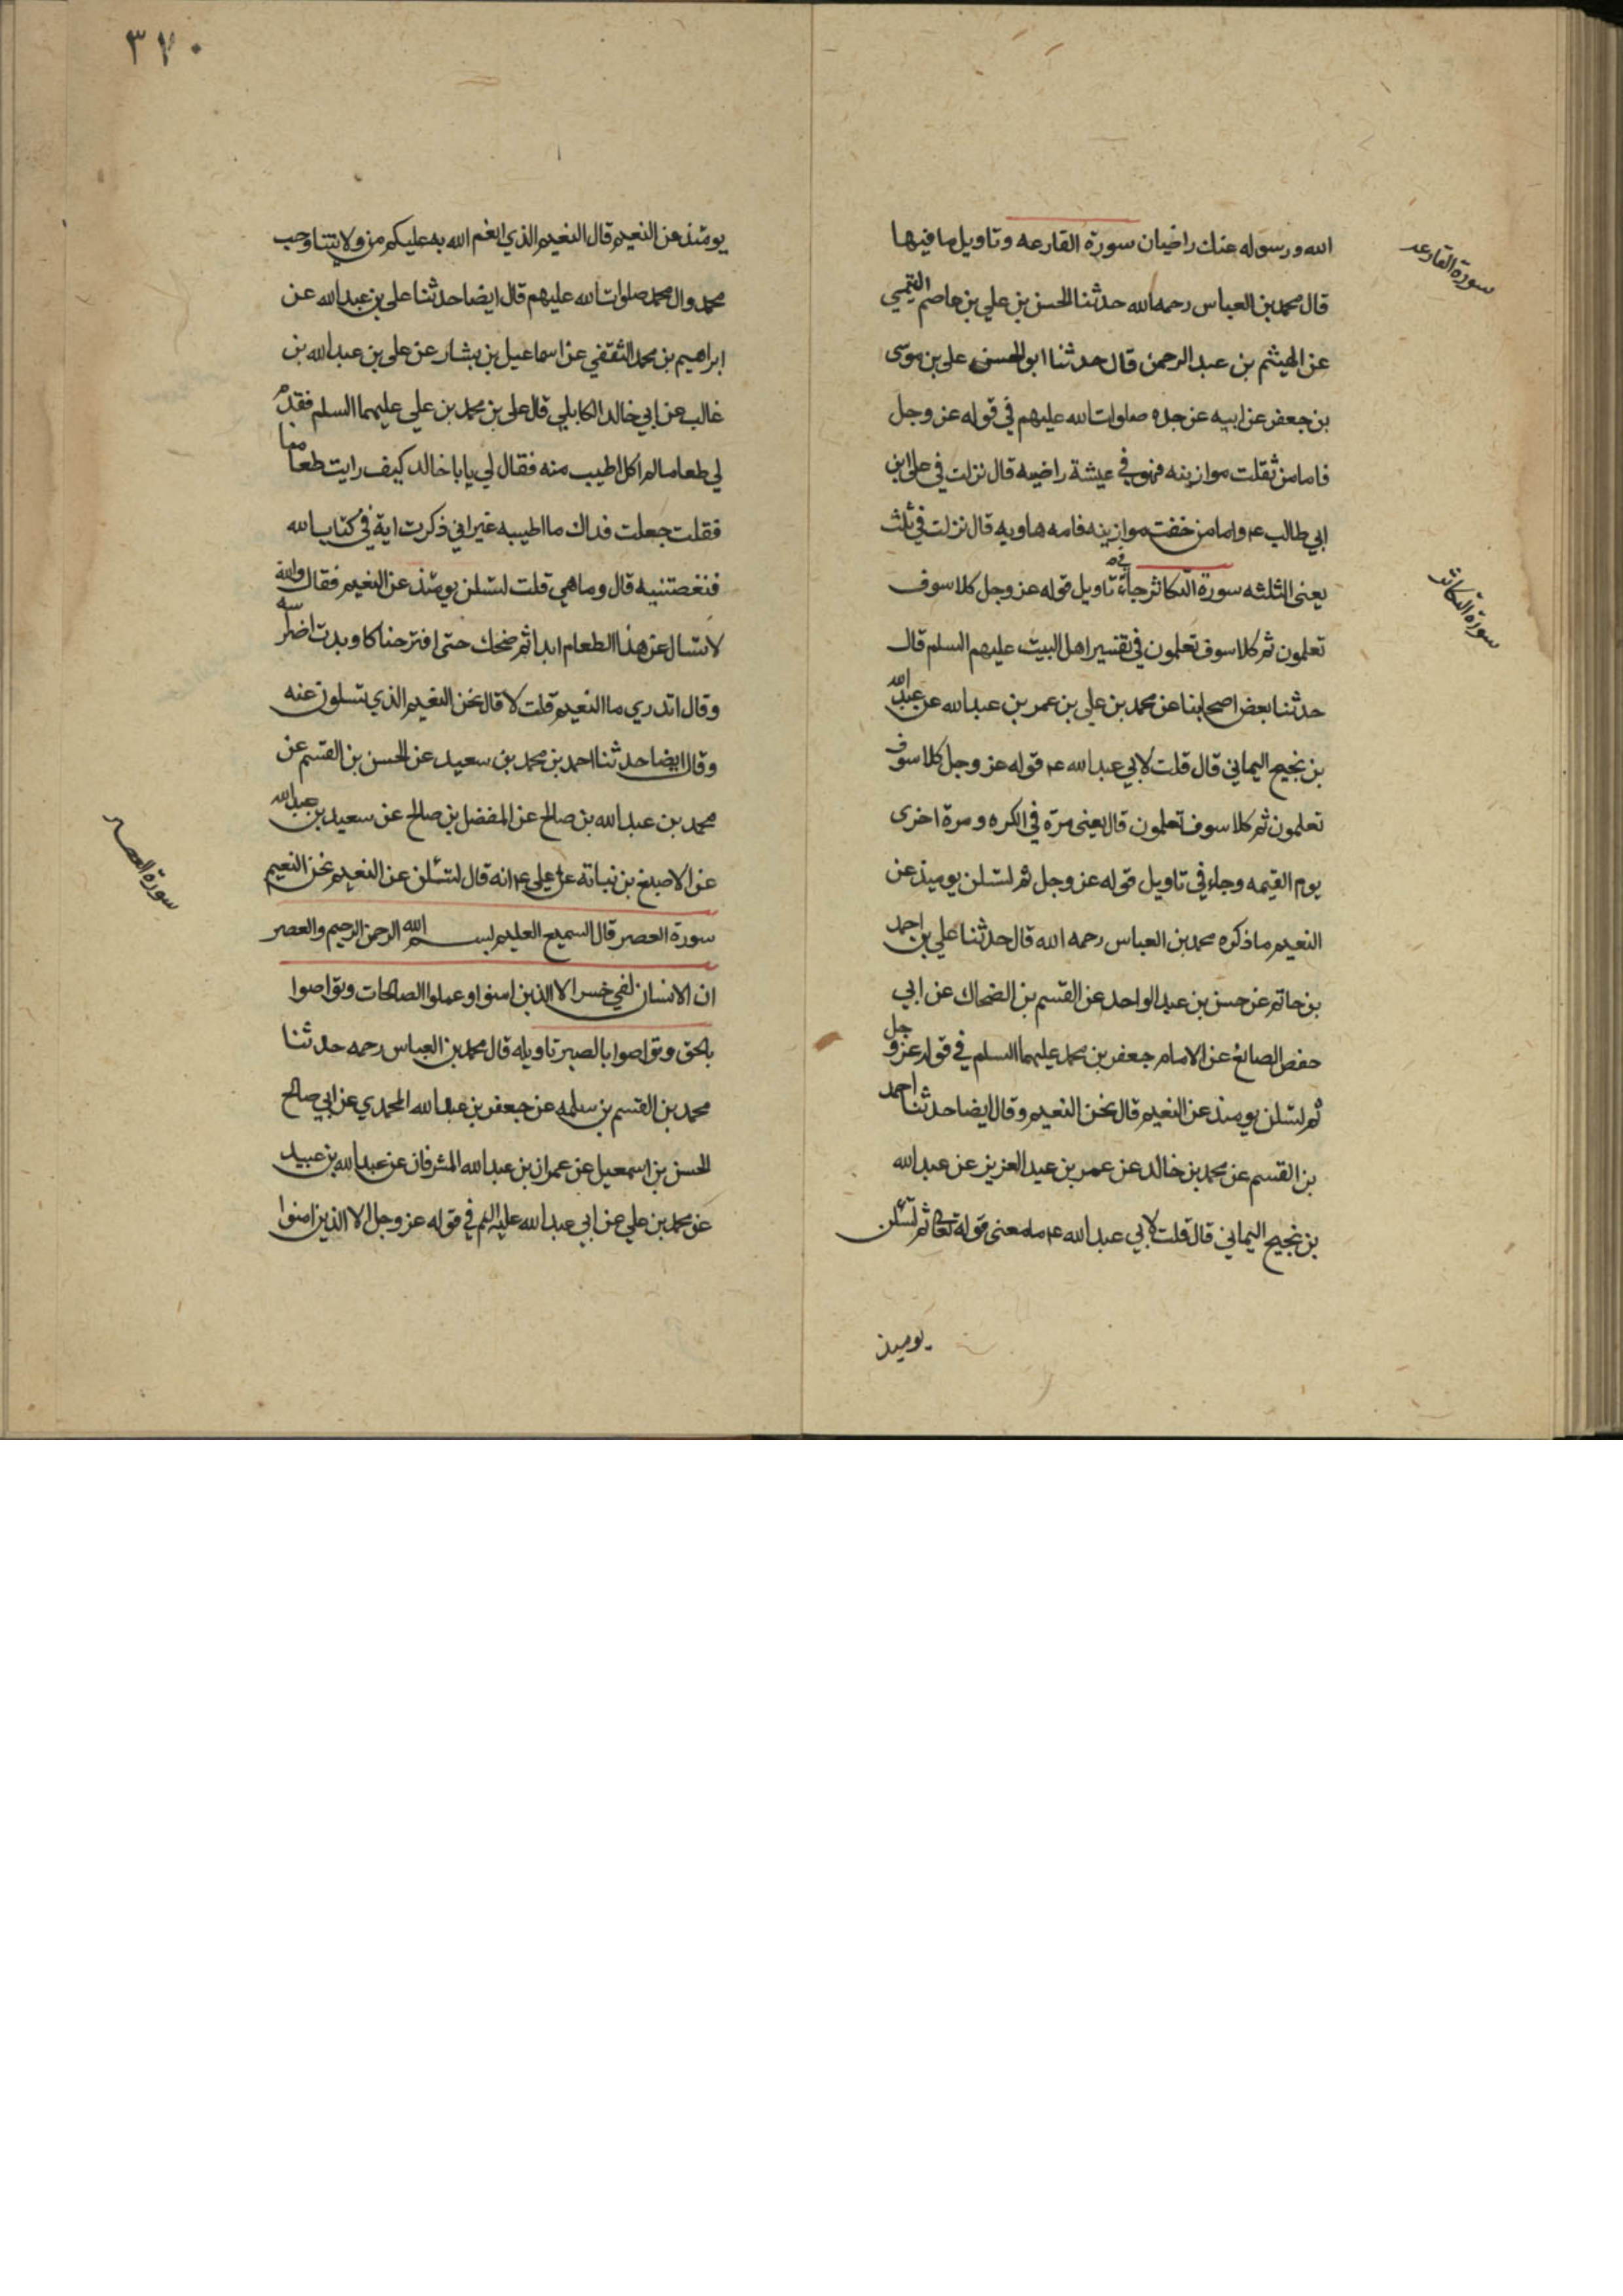 الله ورسوله عنك راضيان سورة القارعه وتاويل ما فيها
سورة القارعه
قال محمد بن العباس رحمه الله حدثنا الحسن بن علي بن عاصم التميمي
عن الهيثم بن عبد الرحمن قال حدثنا ابو الحسن على بن موسى
بن جعفر عن ابيه عن جده صلوات الله عليهم في قوله عز وجل
فاما من ثقلت موازينه فهو في عيشة راضيه قال نزلت في على ابن
ابي طالب ع واما من خفت موازينه فامه هاويه قال نزلت في ثلث
يعنى الثلثه سورة التكاثر جاءة في تاويل قوله عز وجل كلا سوف
سورة التكاثر
تعلمون ثم كلا سوف تعلمون في تفسير اهل البيت عليهم السلم قال
حدثنا بعض اصحابنا عن محمد بن علي بن عمر بن عبد الله عن عبد الله
بن نجيح اليماني قال قلت لابي عبد الله ع قوله عز وجل كلا سوف
تعلمون ثم كلا سوف تعلمون قال يعنى مرة في الكره ومرة اخرى
يوم القيمه وجاء في تاويل قوله عز وجل ثم لتسلن يوميذ عن
النعيم ما ذكره محمد بن العباس رحمه الله قال حدثنا علي بن احمد
بن حاتم عن حسن بن عبد الواحد عن القسم بن الضحاك عن ابي
حفص الصائغ عن الامام جعفر بن محمد عليهما السلم في قوله عز وجل
ثم لتسلن يومئذ عن النعيم قال نحن النعيم وقال ايضا حدثنا احمد
بن القسم عن محمد بن خالد عن عمر بن عبد العزيز عن عبد الله
بن نجيح اليماني قال قلت لابي عبد الله ع ما معنى قوله تعا ثم لتسئلن
يوميذ
٣٧٠
يومئذ عن النعيم قال النعيم الذي انعم الله به عليكم من ولايتنا وحب
محمد وال محمد صلوات الله عليهم قال ايضا حدثنا على بن عبد الله عن
ابراهيم بن محمد الثقفي عن اسماعيل بن بشار عن على بن عبد الله بن
غالب عن ابي خالد الكابلي قال على بن محمد بن علي عليهما السلم فقدم
لي طعاما لم اكل اطيب منه فقال لي يا ابا خالد كيف رايت طعامنا
فقلت جعلت فداك ما اطيبه غير اني ذكرت اية في كتاب الله
فنغصتنيه قال وما هي قلت لتسلن يومئذ عن النعيم فقال والله
لا تسال عن هذا الطعام ابدا ثم ضحك حتى افتر ضاحكا وبدت اضراسه
وقال اتدري ما النعيم قلت لا قال نحن النعيم الذي تسلون عنه
وقال ايضا حدثنا احمد بن محمد بن سعيد عن الحسن بن القسم عن
محمد بن عبد الله بن صالح عن المفضل بن صالح عن سعيد بن عبد الله
عن الاصبغ بن نباتة عن علي ع انه قال لتسئلن عن النعيم نحن النعيم
سورة العصر قال السميع العليم بسم الله الرحمن الرحيم والعصر
سورة العصر
ان الانسان لفي خسر الا الذين امنوا وعملوا الصالحات وتواصوا
بالحق وتواصوا بالصبر تاويله قال محمد بن العباس رحمه حدثنا
محمد بن القسم بن سلمه عن جعفر بن عبد الله المحمدي عن ابي صالح
الحسن بن اسمعيل عن عمران بن عبد الله المشرقان عن عبد الله بن عبيد
عن محمد بن علي عن ابي عبد الله عليه السلم في قوله عز وجل الا الذين امنوا